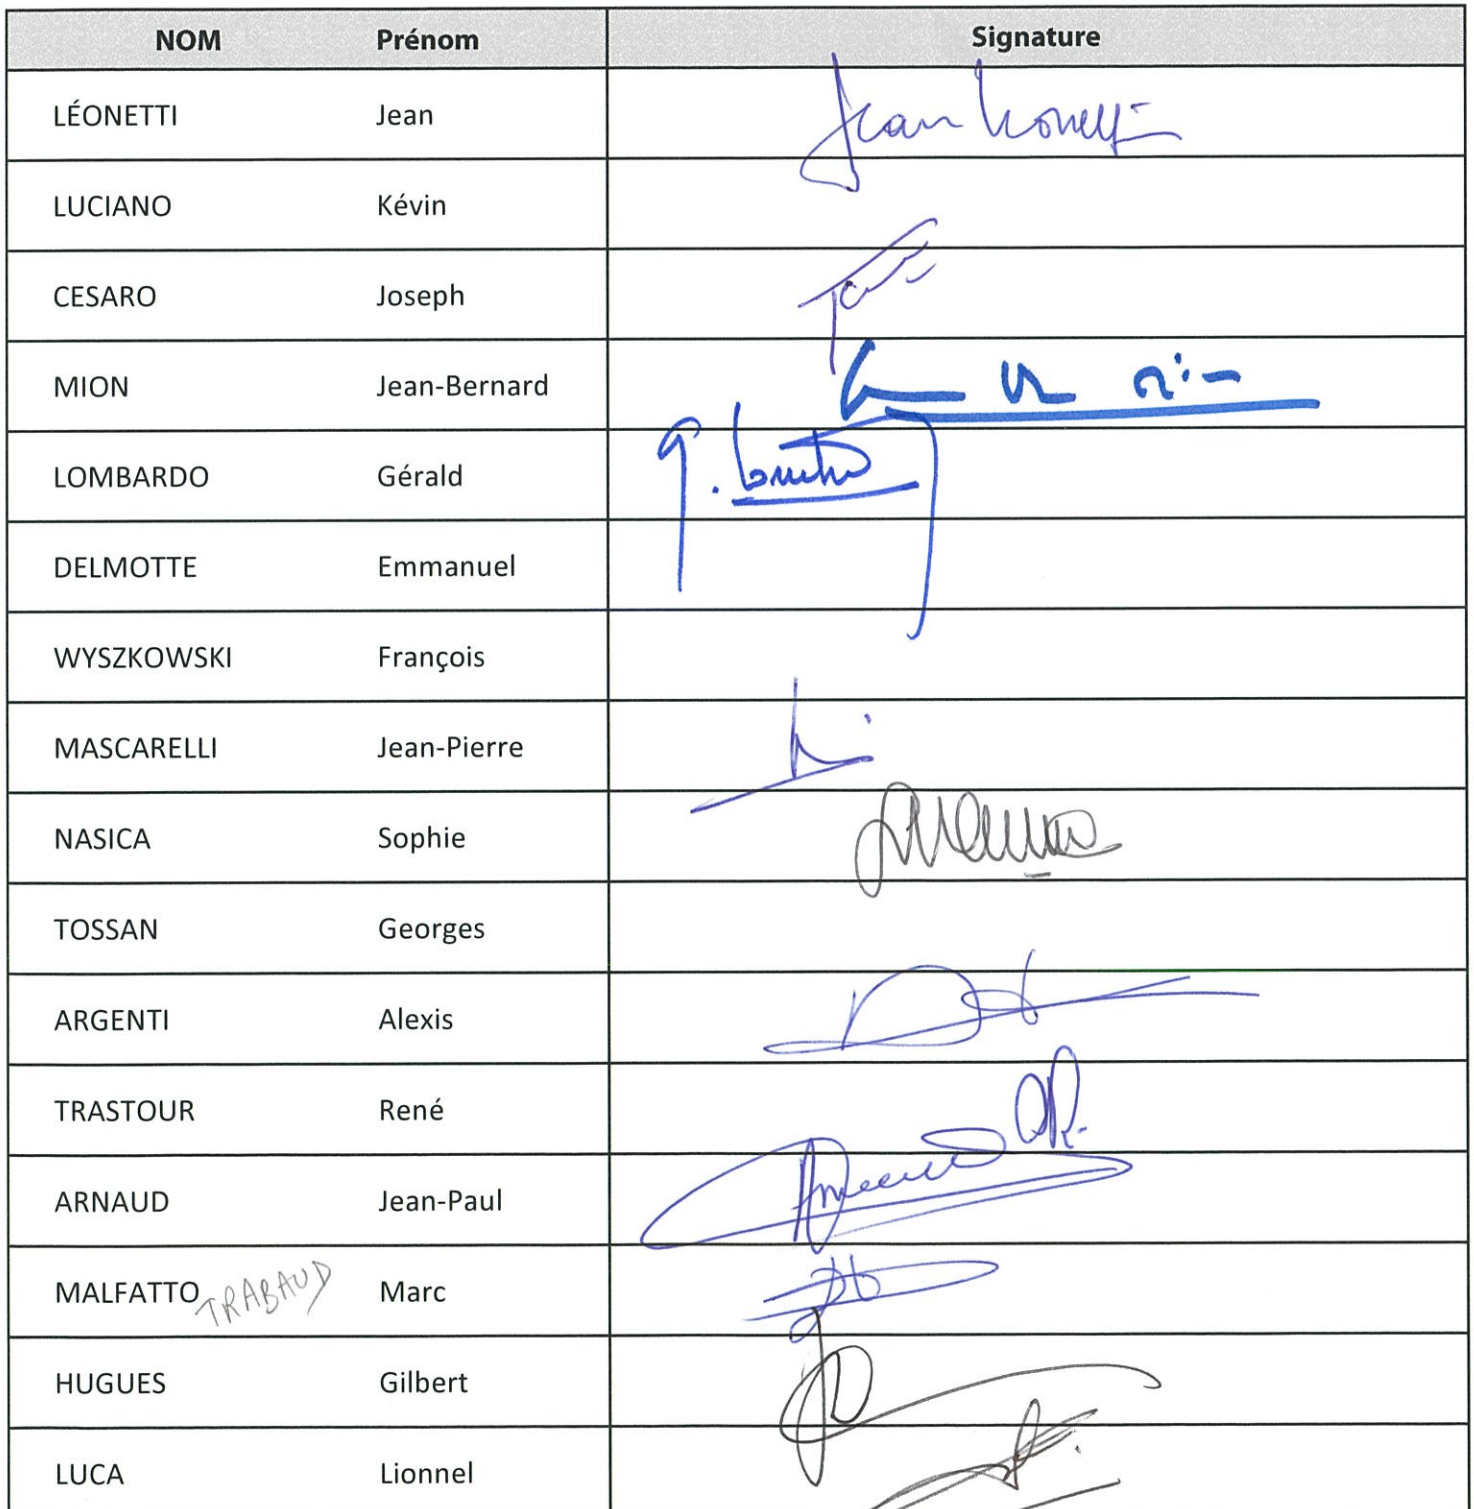 NOM Prénom Signature
LÉONETTI Jean Jean Leonetti
LUCIANO Kévin
CESARO Joseph
MION Jean-Bernard
LOMBARDO Gérald
DELMOTTE Emmanuel
WYSZKOWSKI François
MASCARELLI Jean-Pierre
NASICA Sophie
TOSSAN Georges
ARGENTI Alexis
TRASTOUR René
ARNAUD Jean-Paul
MALFATTO TRABAUD Marc
HUGUES Gilbert
LUCA Lionnel